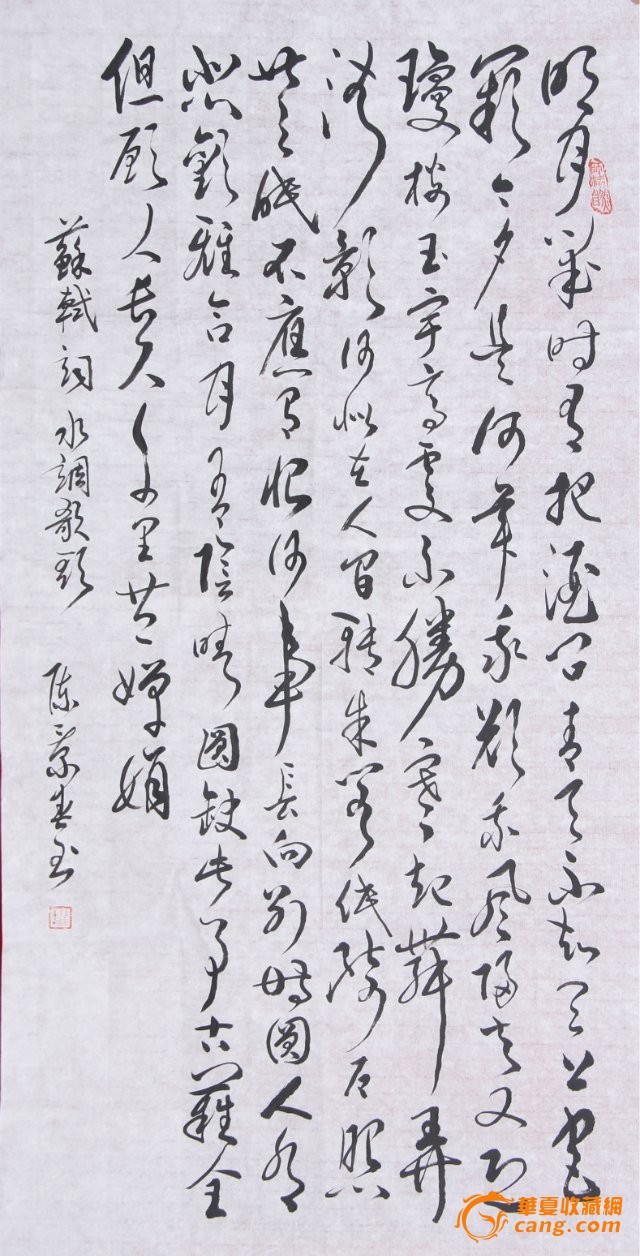 明月幾时有把酒问青天不知天上宫
阙今夕是何年我欲乘风归去又恐
瓊楼玉宇高處不勝寒起舞弄
清影何似在人间转朱阁低绮户照
无眠不應有恨何事長向别时圆人有
悲歡離合月有陰晴圆缺此事古難全
但願人長久千里共嬋娟
蘇軾詞 水調歌頭 陈景春书
華夏收藏網
cang.com